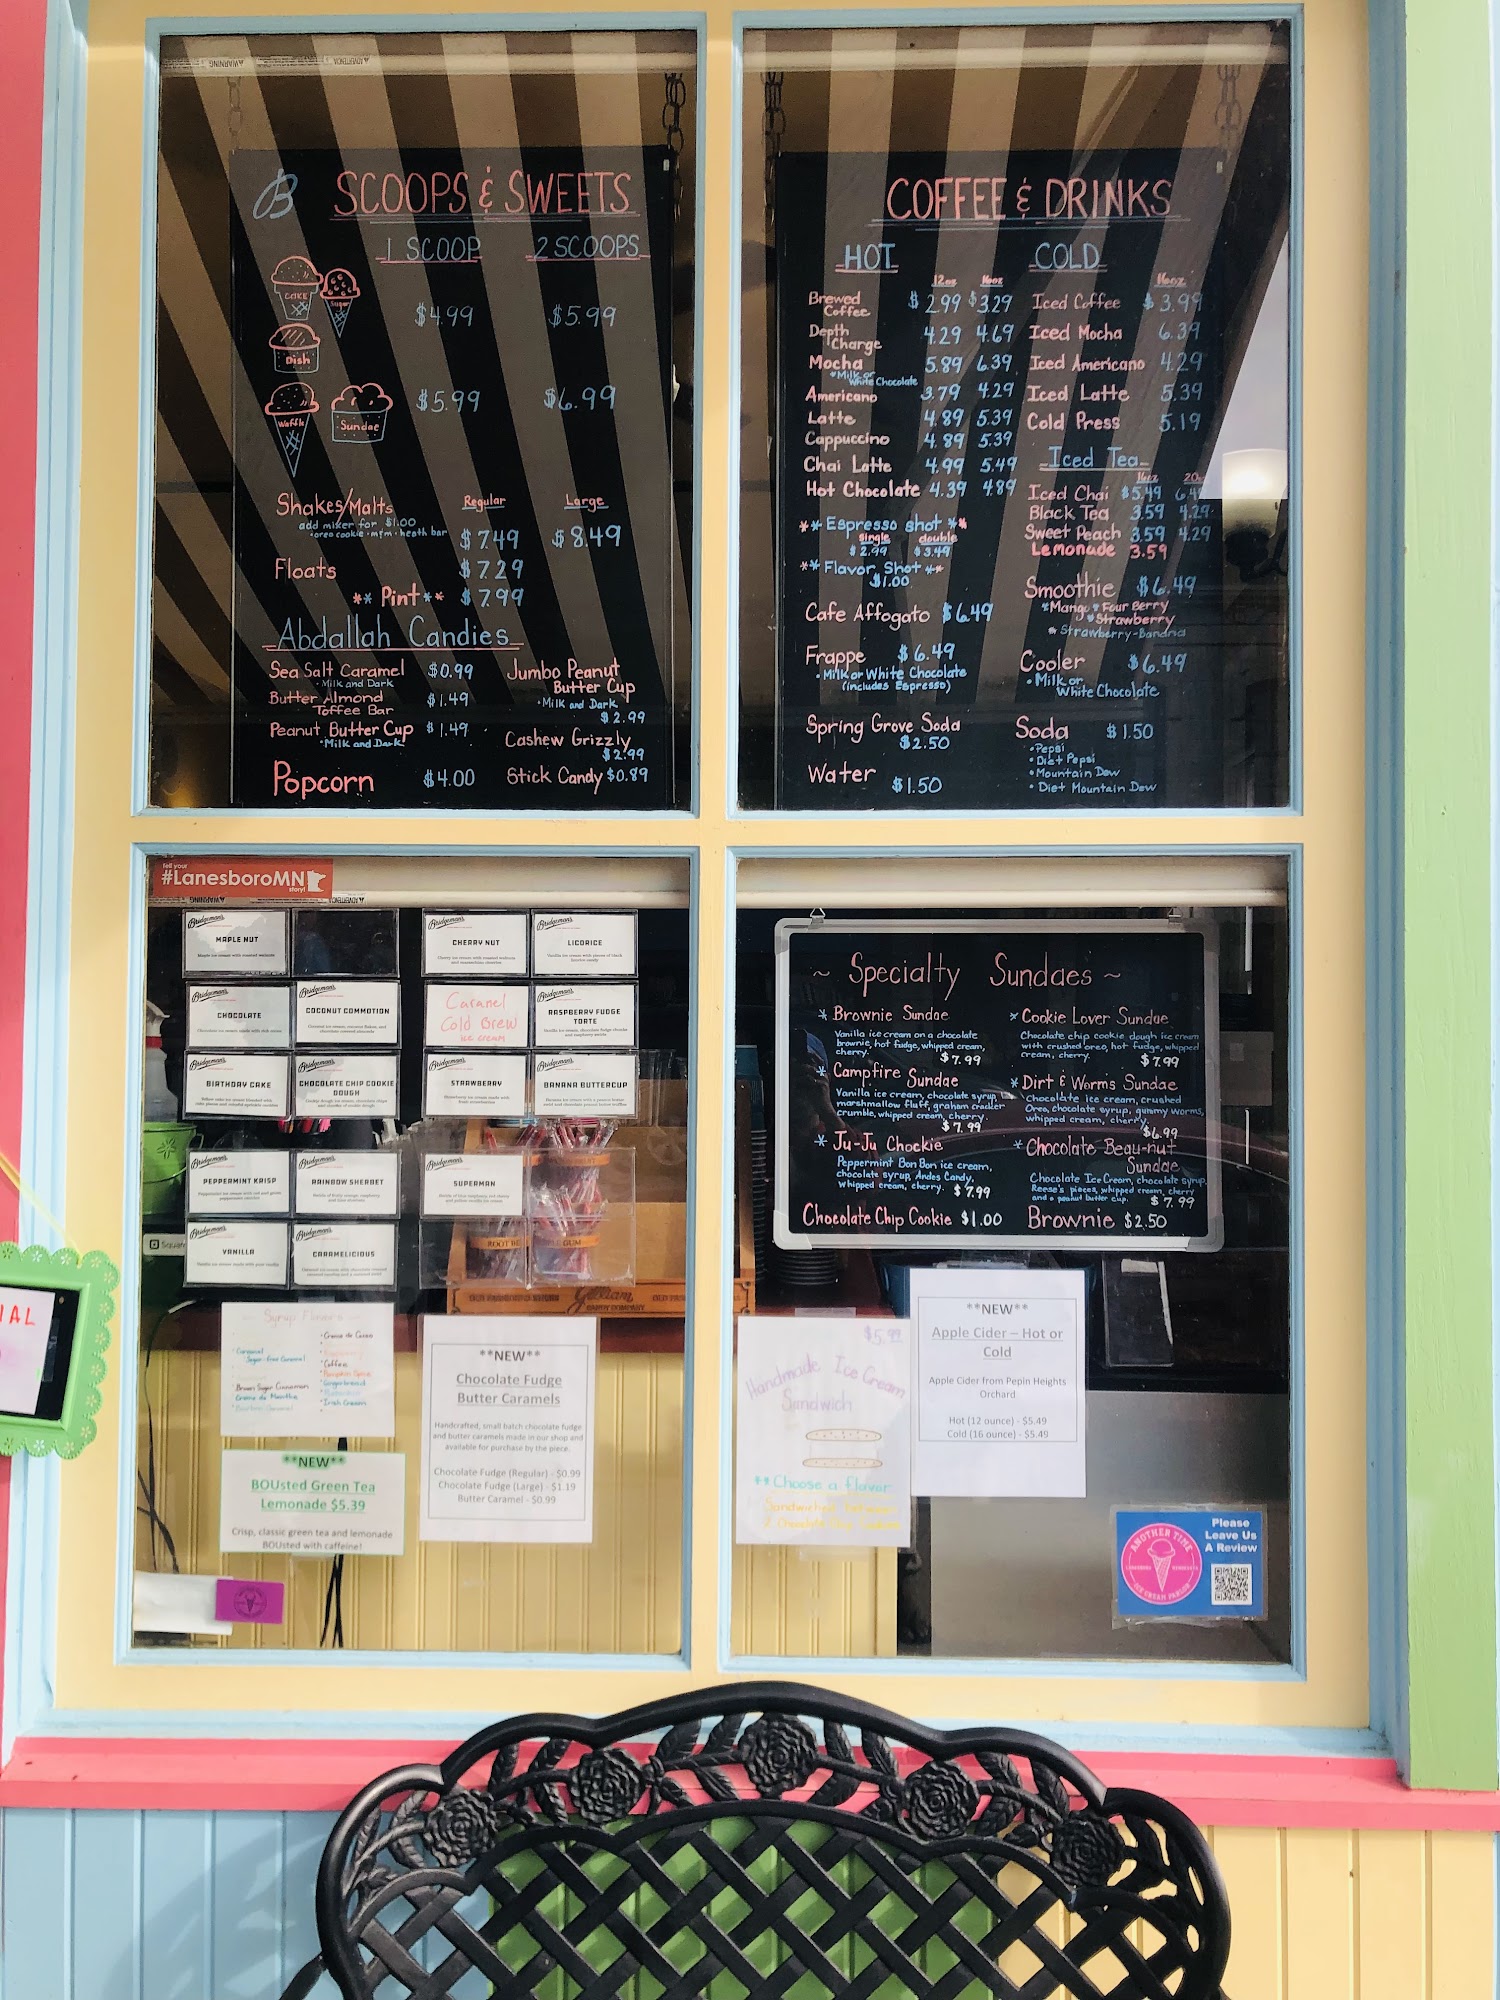 B SCOOPS & SWEETS
1 SCOOP 2 SCOOPS
CAKE
Sugar
Dish
$4.99 $5.99
Waffle
Sundae
$5.99 $6.99
Shakes/Malts Regular Large
add mixer for $1.00
•oreo cookie •m&m •heath bar $7.49 $8.49
Floats $7.29
** Pint ** $7.99
Abdallah Candies
Sea Salt Caramel $0.99
•Milk and Dark
Butter Almond
Toffee Bar $1.49
Peanut Butter Cup $1.49
•Milk and Dark
Popcorn $4.00
Jumbo Peanut
Butter Cup
•Milk and Dark
$2.99
Cashew Grizzly
$2.99
Stick Candy $0.89
COFFEE & DRINKS
HOT
12oz 16oz
Brewed
Coffee $2.99 $3.29
Depth
Charge 4.29 4.69
Mocha 5.89 6.39
*Milk or
White Chocolate
Americano 3.79 4.29
Latte 4.89 5.39
Cappuccino 4.89 5.39
Chai Latte 4.99 5.49
Hot Chocolate 4.39 4.89
** Espresso shot **
single double
$2.99 $3.49
** Flavor Shot **
$1.00
Cafe Affogato $6.49
Frappe $6.49
•Milk or White Chocolate
(includes Espresso)
Spring Grove Soda
$2.50
Water $1.50
COLD
16oz
Iced Coffee $3.99
Iced Mocha 6.39
Iced Americano 4.29
Iced Latte 5.39
Cold Press 5.19
Iced Tea
16oz 20oz
Iced Chai $5.49
Black Tea 3.59 4.29
Sweet Peach 3.59 4.29
Lemonade 3.59
Smoothie $6.49
*Mango *Four Berry
*Strawberry
*Strawberry-Banana
Cooler $6.49
•Milk or
White Chocolate
Soda $1.50
•Pepsi
•Diet Pepsi
•Mountain Dew
•Diet Mountain Dew
Tell your
#LanesboroMN
story!
Bridgeman's
MAPLE NUT
Bridgeman's
CHERRY NUT
Bridgeman's
LICORICE
Bridgeman's
CHOCOLATE
Bridgeman's
COCONUT COMMOTION
Caramel
Cold Brew
ice cream
Bridgeman's
RASPBERRY FUDGE
TORTE
Bridgeman's
BIRTHDAY CAKE
Bridgeman's
CHOCOLATE CHIP COOKIE
DOUGH
Bridgeman's
STRAWBERRY
Bridgeman's
BANANA BUTTERCUP
Bridgeman's
PEPPERMINT KRISP
Bridgeman's
RAINBOW SHERBET
Bridgeman's
SUPERMAN
Bridgeman's
VANILLA
Bridgeman's
CARAMELICIOUS
Square
ROOT BE
Gilliam
CANDY COMPANY
~ Specialty Sundaes ~
* Brownie Sundae
Vanilla ice cream on a chocolate
brownie, hot fudge, whipped cream,
cherry. $7.99
* Campfire Sundae
Vanilla ice cream, chocolate syrup,
marshmallow fluff, graham cracker
crumble, whipped cream, cherry.
$7.99
* Ju-Ju Chockie
Peppermint Bon Bon ice cream,
chocolate syrup, Andes Candy,
whipped cream, cherry. $7.99
Chocolate Chip Cookie $1.00
* Cookie Lover Sundae
Chocolate chip cookie dough ice cream
with crushed oreo, hot fudge, whipped
cream, cherry. $7.99
* Dirt & Worms Sundae
Chocolate ice cream, crushed
Oreo, chocolate syrup, gummy worms,
whipped cream, cherry.
$6.99
* Chocolate Beau-nut
Sundae
Chocolate Ice Cream, chocolate syrup,
Reese's pieces, whipped cream, cherry
and a peanut butter cup. $7.99
Brownie $2.50
IAL
Syrup Flavors
Caramel
Sugar-free Caramel
Brown Sugar Cinnamon
Creme de Menthe
Creme de Cacao
Toffee
Pumpkin Spice
Gingerbread
Irish Cream
**NEW**
BOUsted Green Tea
Lemonade $5.39
Crisp, classic green tea and lemonade
BOUsted with caffeine!
**NEW**
Chocolate Fudge
Butter Caramels
Handcrafted, small batch chocolate fudge
and butter caramels made in our shop and
available for purchase by the piece.
Chocolate Fudge (Regular) - $0.99
Chocolate Fudge (Large) - $1.19
Butter Caramel - $0.99
$5.99
Handmade Ice Cream
Sandwich
**Choose a flavor
Sandwiched between
2 Chocolate Chip Cookies
**NEW**
Apple Cider – Hot or
Cold
Apple Cider from Pepin Heights
Orchard
Hot (12 ounce) - $5.49
Cold (16 ounce) - $5.49
ANOTHER TIME
ICE CREAM PARLOR
Please
Leave Us
A Review